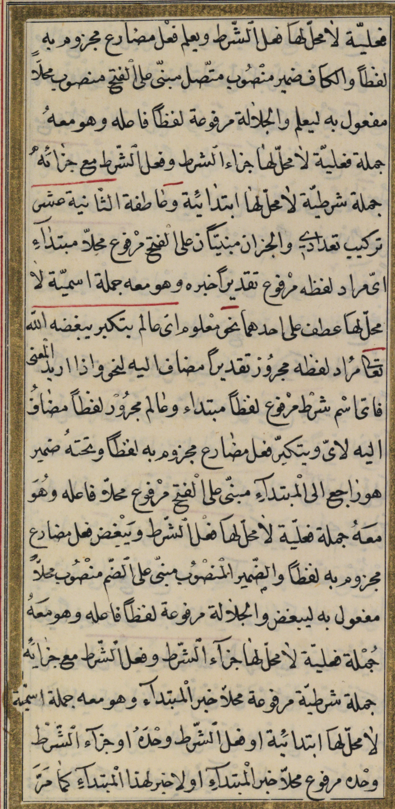 فعليّة لا محلّ لها فعل الشّرط ويعلم فعل مضارع مجزوم به
لفظًا والكاف ضمير منصوب متّصل مبنيّ على الفتح منصوب محلّا
مفعول به ليعلم والجلالة مرفوعة لفظًا فاعله وهو معه
جملة فعليّة لا محلّ لها جزاء الشرط وفعل الشّرط مع جزائه
جملة شرطيّة لا محلّ لها ابتدائيّة وعاطفة الثانية عشر
تركيب تعدادي والجزان مبنيّان على الفتح مرفوع محلّا مبتداء
اىّ مراد لفظه مرفوع تقديرًا خبره وهو معه جملة اسميّة لا
محلّ لها عطف على احدهما نحو معلوم اىّ عالم يتكبّر يبغضه الله
تعا مراد لفظه مجرور تقديرًا مضاف اليه لنحو واذا اريد المعنى
فاىّ اسم شرط مرفوع لفظًا مبتداء وعالم مجرور لفظًا مضاف
اليه لاىّ ويتكبّر فعل مضارع مجزوم به لفظًا وتحته ضمير
هو راجع الى المبتداء مبنىّ على الفتح مرفوع محلّا فاعله وهو
معه جملة فعليّة لا محلّ لها فعل الشّرط ويبغض فعل مضارع
مجزوم به لفظًا والضمير المنصوب مبنىّ على الضّم منصوب محلّا
مفعول به ليبغض والجلالة مرفوعة لفظًا فاعله وهو معه
جملة فعليّة لا محلّ لها جزاء الشّرط وفعل الشّرط مع جزائه
جملة شرطيّة مرفوعة محلّا خبر المبتداء وهو معه جملة اسميّة
لا محلّ لها ابتدائيّة او فعل الشّرط وحده او جزاء الشّرط
وحده مرفوع محلّا خبر المبتداء او لا خبر لهذا المبتداء كما مرّ